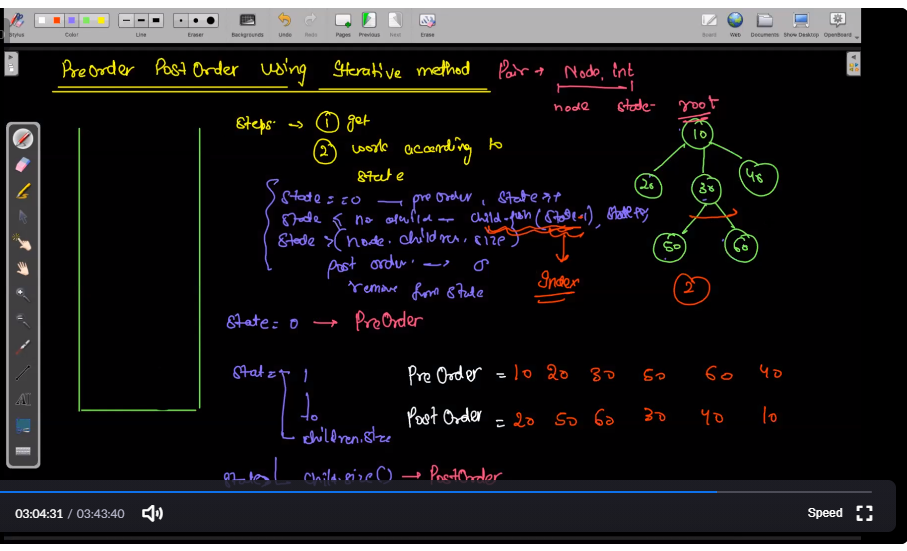 Stylus Color Line Eraser Backgrounds Undo Redo Pages Previous Next Erase Board Web Documents Show Desktop OpenBoard
PreOrder Post Order using Iterative method
Pair → Node, int
node state
root
Steps → ① get
② work according to
state
state == 0 — pre order, state++
state ≤ no — child push (state-1), state++
state > (node.children.size)
post order →
remove from state
Index
10
20 30 40
50 60
2
state = 0 → PreOrder
state = 1
to
children.size
Pre Order = 10 20 30 50 60 40
Post Order = 20 50 60 30 40 10
child.size() → PostOrder
03:04:31 / 03:43:40
Speed